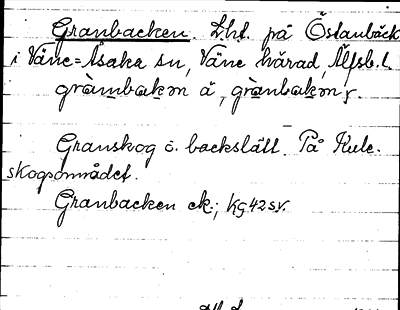 Granbacken. Lht. på Östanbäck
i Väne=Åsaka sn, Väne härad, Älfsb. l.
gràmbakən å, grànbakən r.
Granskog o. backslätt. På Kule-
skogsområdet.
Granbacken ek.; kg42sv.